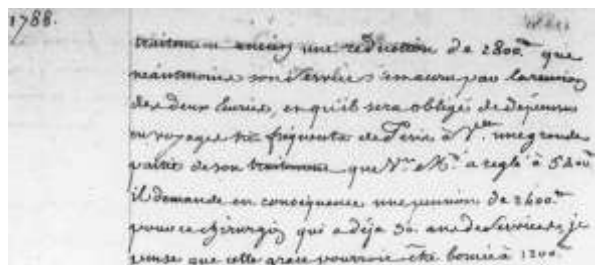 1788.
traitement ancien une reduction de 2800.ᵗᵗ que
néantmoins son service s'émeure par la reunion
des deux Ecuries, et qu'il sera obligé de dépenser
en voyages très fréquents de Paris à V.ᵉˢ une grande
partie de son traitement que V.ʳᵉ M.ᵗᵉ a reglé à 5400
il demande en conséquence une pension de 2600.ᵗᵗ
pour ce chirurgien qui a déja 30. ans de services, je
pense que cette grace pourroit être bornée à 1200.ᵗᵗ